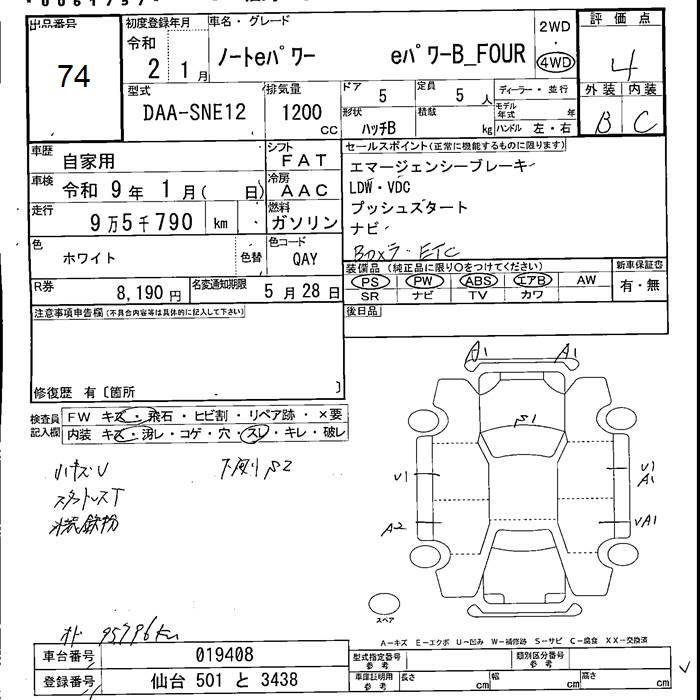 出品番号 初度登録年月 車名・グレード 2WD ・ 4WD 評価点
74 令和 2 1月 ノートeパワー eパワーB_FOUR 4
型式 排気量 ドア 定員 ディーラー・並行 外装 内装
DAA-SNE12 1200 cc 5 5人 モデル年式 年 B C
形状 積載
ハッチB kg ハンドル 左・右
車歴 自家用 シフト FAT セールスポイント(正常に機能するものに限ります)
車検 令和 9年 1月( 日) 冷房 AAC エマージェンシーブレーキ
LDW・VDC
走行 9万5千790 km 燃料 ガソリン プッシュスタート
ナビ
色 ホワイト 色替 色コード QAY Bカメラ・ETC
R券 8,190円 名変通知期限 5月28日
装備品(純正品に限り○をつけてください) 新車保証書
PS PW ABS エアB AW 有・無
SR ナビ TV カワ
注意事項申告欄(不具合内容等は具体的に記入して下さい) 後日品
修復歴 有〔箇所 〕
検査員記入欄 FW キズ・飛石・ヒビ割・リペア跡・×要
内装 キズ・汚レ・コゲ・穴・スレ・キレ・破レ
A1 A1
S1
U1 U1
A1
A2 UA1
ハキズU 下廻りS2
スタットレスT
スペア
オド 95796km
A-キズ E-エクボ U-凹み W-補修跡 S-サビ C-腐食 XX-交換済
車台番号 019408 型式指定番号 参考 類別区分番号 参考
登録番号 仙台 501 と 3438 車庫証明用 参考 長さ cm 幅 cm 高さ cm